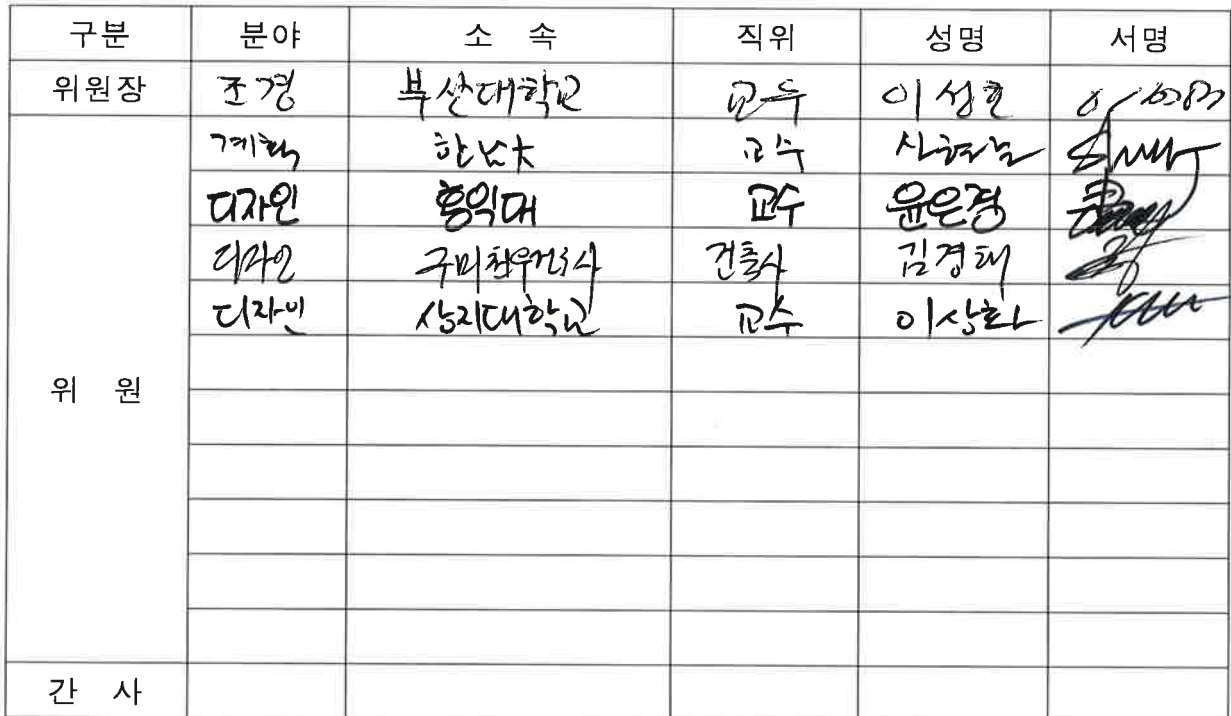 구분 분야 소 속 직위 성명 서명
위원장 조경 부산대학교 교수 이성호
계획 한남大 교수
디자인 홍익대 교수 윤은경
디자인 건축사 김경태
디자인 상지대학교 교수 이상화
위 원
간 사